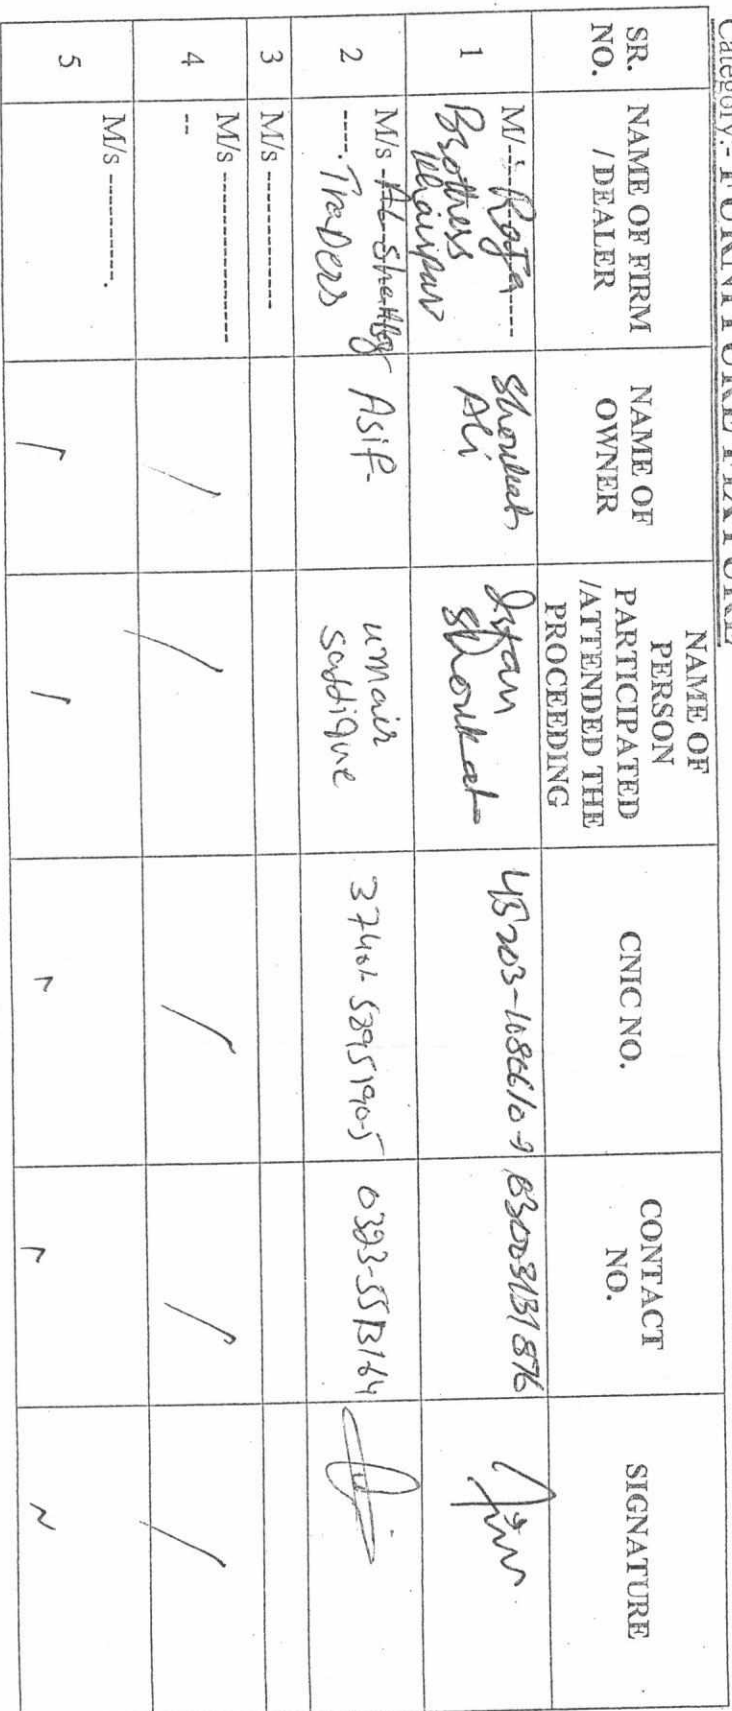 Category:- FURNITURE FIXTURE
SR. NO. NAME OF FIRM / DEALER NAME OF OWNER NAME OF PERSON PARTICIPATED /ATTENDED THE PROCEEDING CNIC NO. CONTACT NO. SIGNATURE
1 M/ Raja Brothers Khairpur Shoukat Ali Irfan Shoukat 45203-1086610-9
2 M/s Traders Asif- umair saddique 37401-5895190-5
3 M/s -------------
4 M/s ---------------- --
5 M/s ----------.